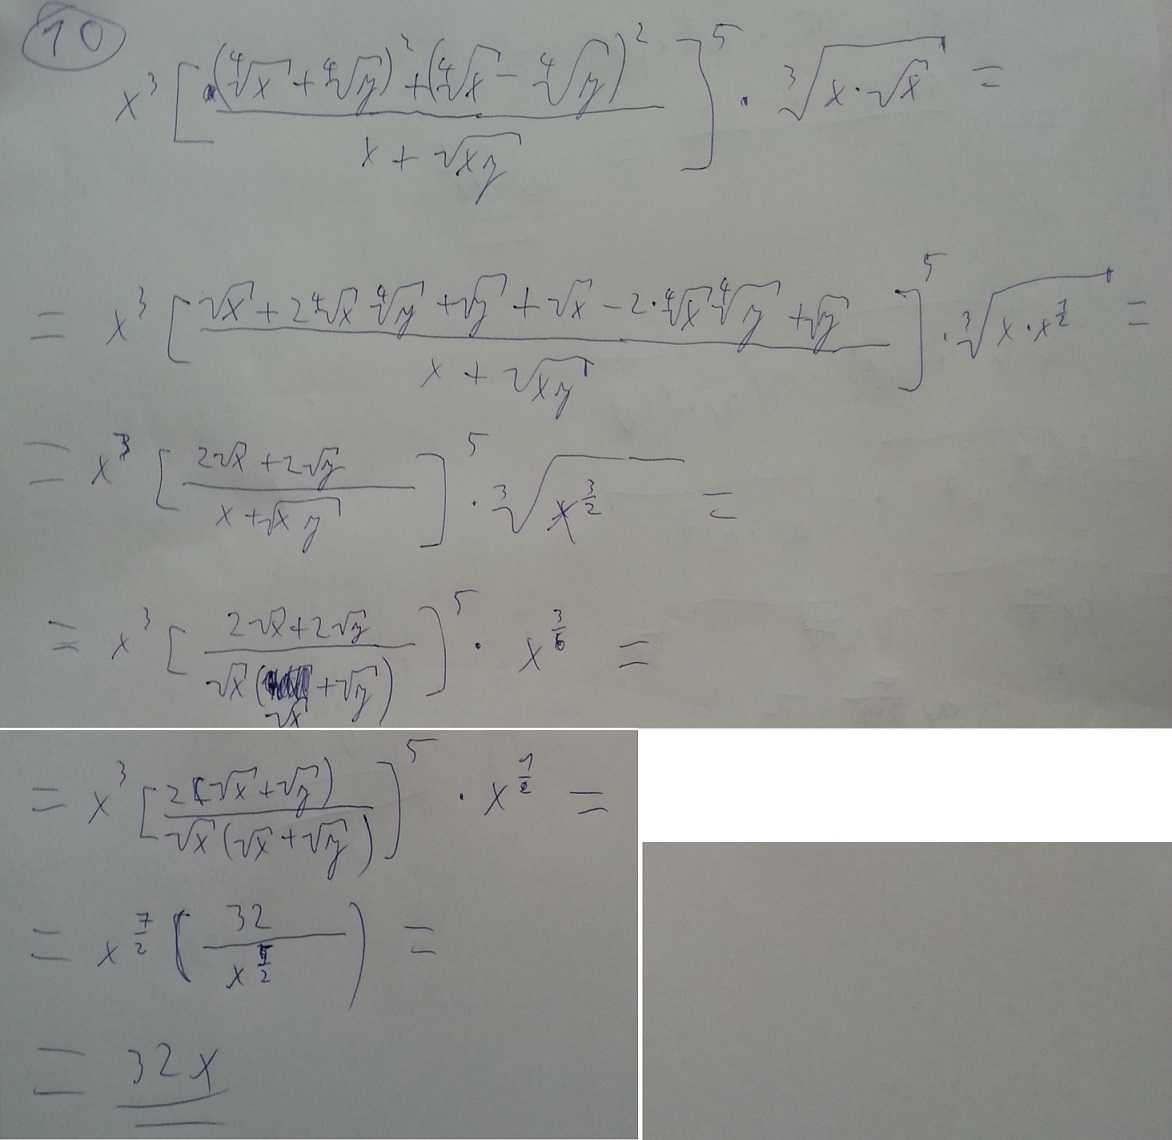 10
x³ [ ((∜x + ∜y)² + (∜x − ∜y)²) / (x + √xy) ]⁵ · ∛(x · √x) =
= x³ [ (√x + 2∜x ∜y + √y + √x − 2·∜x ∜y + √y) / (x + √xy) ]⁵ · ∛(x · x^(1/2)) =
= x³ [ (2√x + 2√y) / (x + √xy) ]⁵ · ∛(x^(3/2)) =
= x³ [ (2√x + 2√y) / (√x (√x + √y)) ]⁵ · x^(3/6) =
= x³ [ 2(√x + √y) / (√x (√x + √y)) ]⁵ · x^(1/2) =
= x^(7/2) ( 32 / x^(5/2) ) =
= 32x